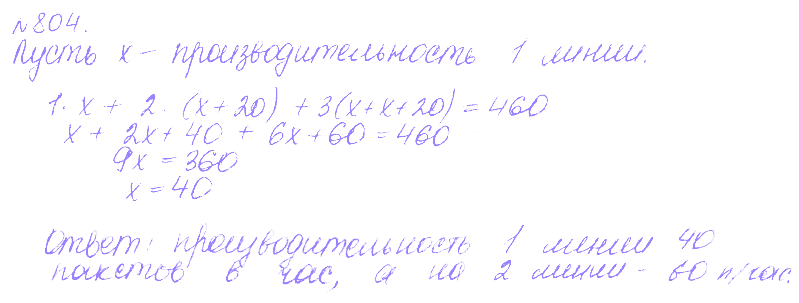 №804.
Пусть x – производительность 1 линии.
1·x + 2·(x+20) + 3(x+x+20) = 460
x + 2x+40 + 6x+60 = 460
9x = 360
x = 40
Ответ: производительность 1 линии 40
пакетов в час, а на 2 линии - 60 п/час.